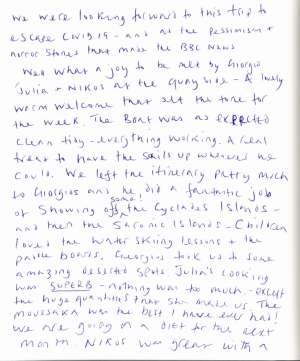 We were looking forward to this trip to
escape CVID19 - and all the pessimism +
horror stories that make the BBC News
Well what a joy to be met by Giorgio
Julia + Nikos at the quay side - A lovely
warm welcome that set the tone for
the week. The Boat was as expected
clean tidy - everything working. A real
treat to have the sails up whenever we
could. We left the itinerary pretty much
to Giorgios and he did a fantastic job
of showing off some! the Cyclades Islands -
and then the Saronic Islands - Children
loved the water skiing lessons + the
paddle boards. Georgios took us to some
amazing deserted spots Julia's cooking
was SUPERB - nothing was too much - except
the huge quantities that she made us The
moussaka was the best I have ever had!
We are going on a diet for the next
month. Nikos was great with a